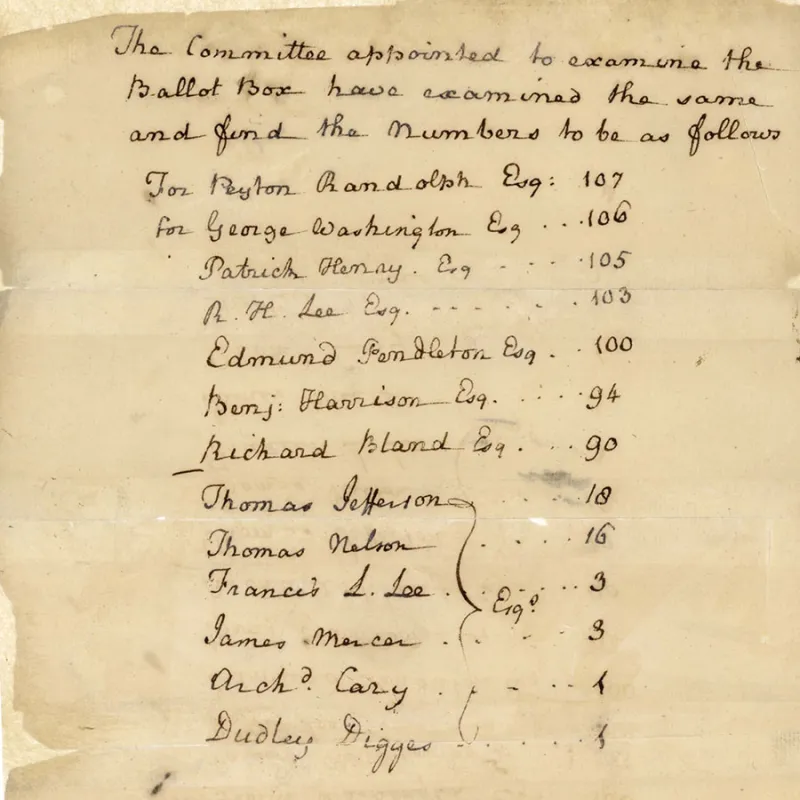 The Committee appointed to examine the
Ballot Box have examined the same
and find the Numbers to be as follows
For Peyton Randolph Esq: 107
for George Washington Esq ... 106
Patrick Henry. Esq - - - 105
R. H. Lee Esq. - - - - - 103
Edmund Pendleton Esq . . 100
Benj: Harrison Esq. . . . 94
Richard Bland Esq . . . 90
Thomas Jefferson - - - 18
Thomas Nelson . . . . 16
Francis L. Lee . . . . 3
Esqs.
James Mercer . . - - 3
Archd. Cary . . - . . 1
Dudley Digges . . . . . 1